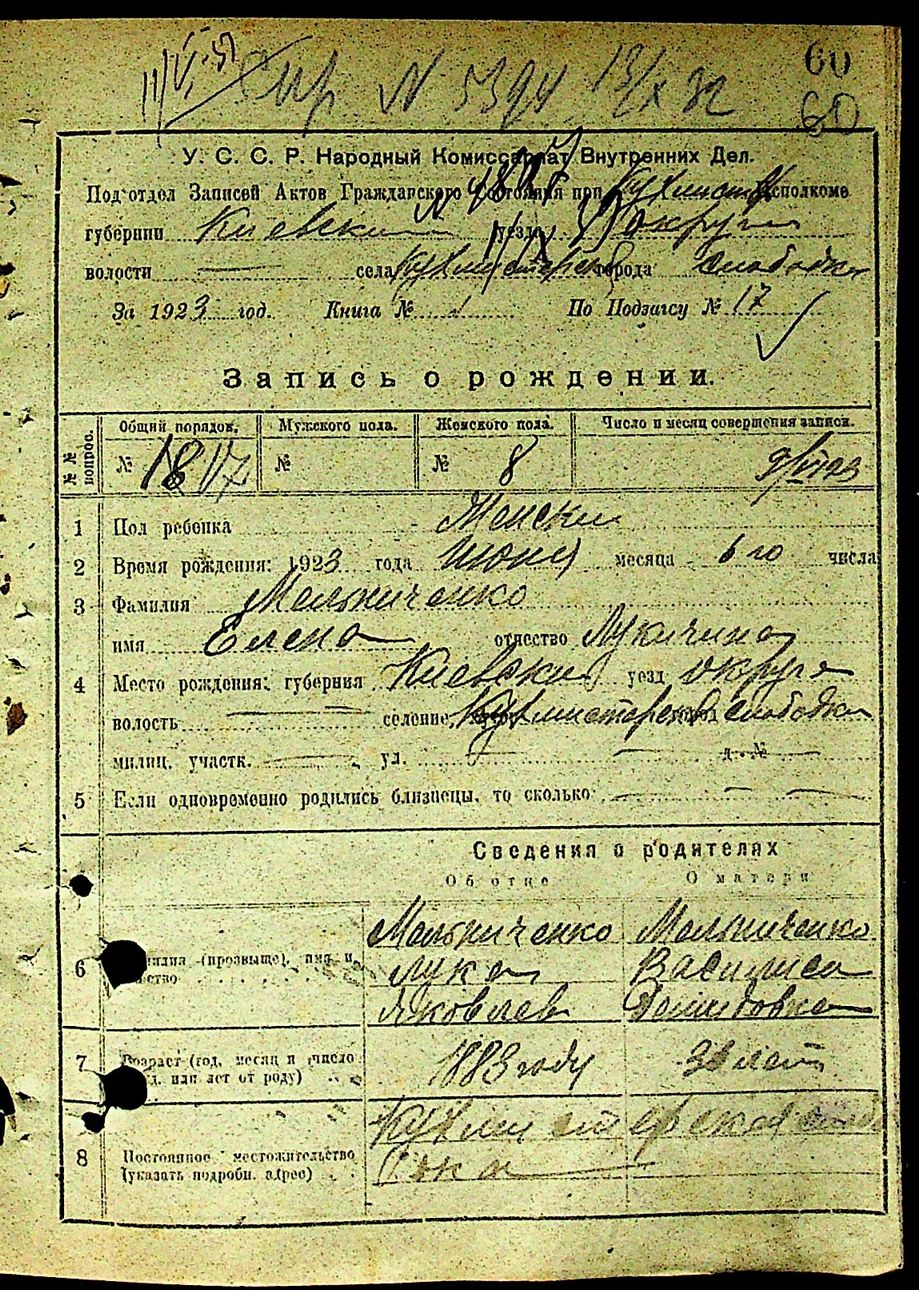 60
11/VI-51 Спр N 5394 13/IX 32
60
У. С. С. Р. Народный Комиссариат Внутренних Дел.
Подотдел Записей Актов Гражданского Состояния при Исполкоме
губернии Киевски уезда Округи
волости — села Кухмистерск города слободки
За 1923 год. Книга № 1 По Подзагсу № 17
Запись о рождении.
№№ вопрос. Общий порядов. Мужского пола. Женского пола. Число и месяц совершения записи.
№ 18 17 № № 8 9/VII 23
1 Пол ребенка Женски
2 Время рождения: 1923 года Июня месяца 6 го числа
3 Фамилия Мельниченко
имя Елена отчество Лукична
4 Место рождения: губерния Киевский уезд округа
волость — селение Кухмистерск слободка
милиц. участк. — ул. — д. № —
5 Если одновременно родились близнецы, то сколько — — —
Сведения о родителях
Об отце О матери
Мельниченко Мельниченко
6 (прозвыще), имя и Лука Василиса
Яковлев Демидовна
7 Возраст (год, месяц и число 1883 году лет
или лет от роду)
Кухмистерская
8 Постоянное местожительство
(указать подробн. адрес)